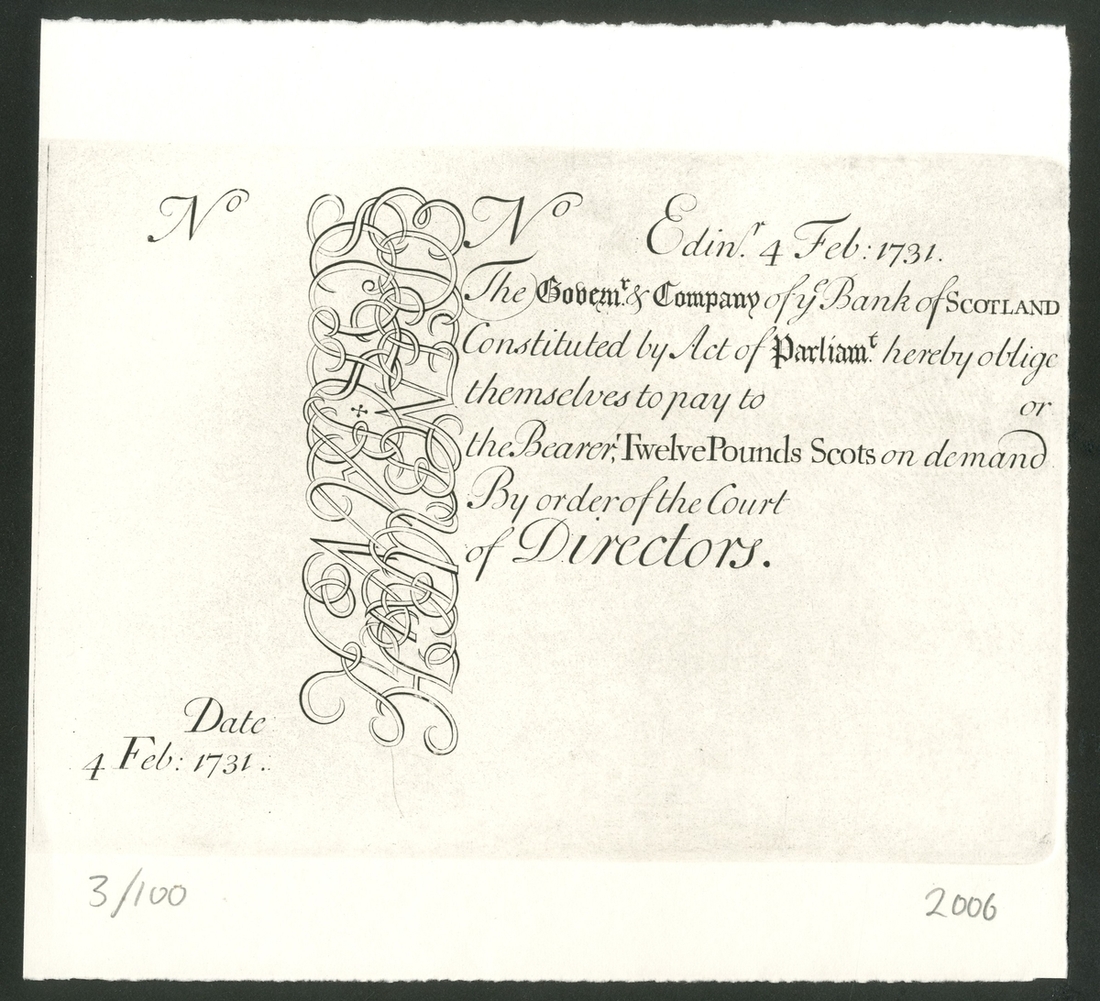 Nº
Nº
Edinʳ. 4 Feb: 1731.
The Governʳ. & Company of yᵉ Bank of SCOTLAND
Constituted by Act of Parliamᵗ. hereby oblige
themselves to pay to or
the Bearer, Twelve Pounds Scots on demand
By order of the Court
of Directors.
Date
4 Feb: 1731.
3/100
2006